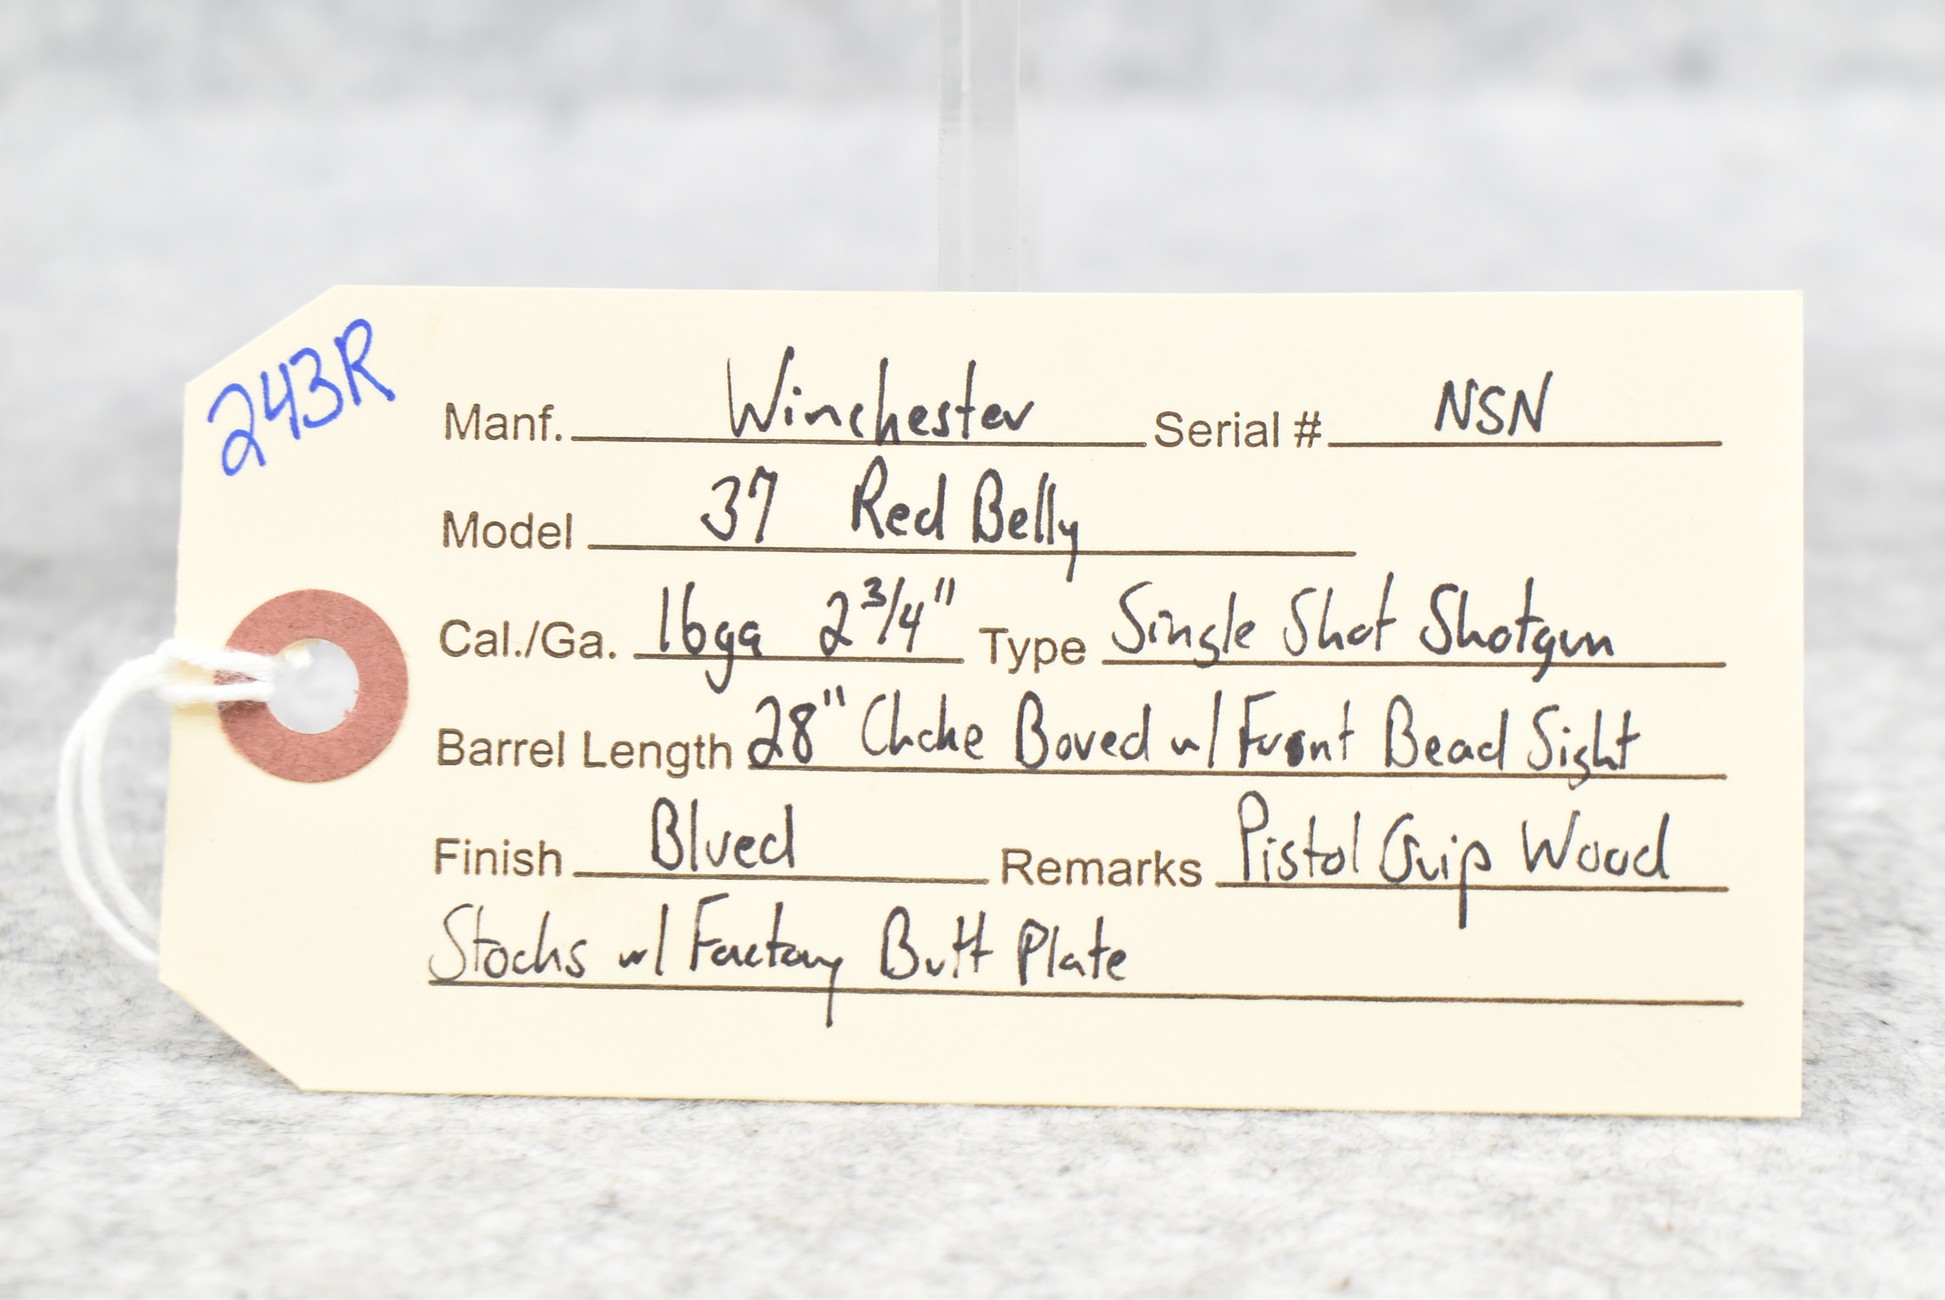 243R
Manf. Winchester Serial # NSN
Model 37 Red Belly
Cal./Ga. 16ga 2 3/4" Type Single Shot Shotgun
Barrel Length 28" Choke Bored w/ Front Bead Sight
Finish Blued Remarks Pistol Grip Wood
Stocks w/ Factory Butt Plate